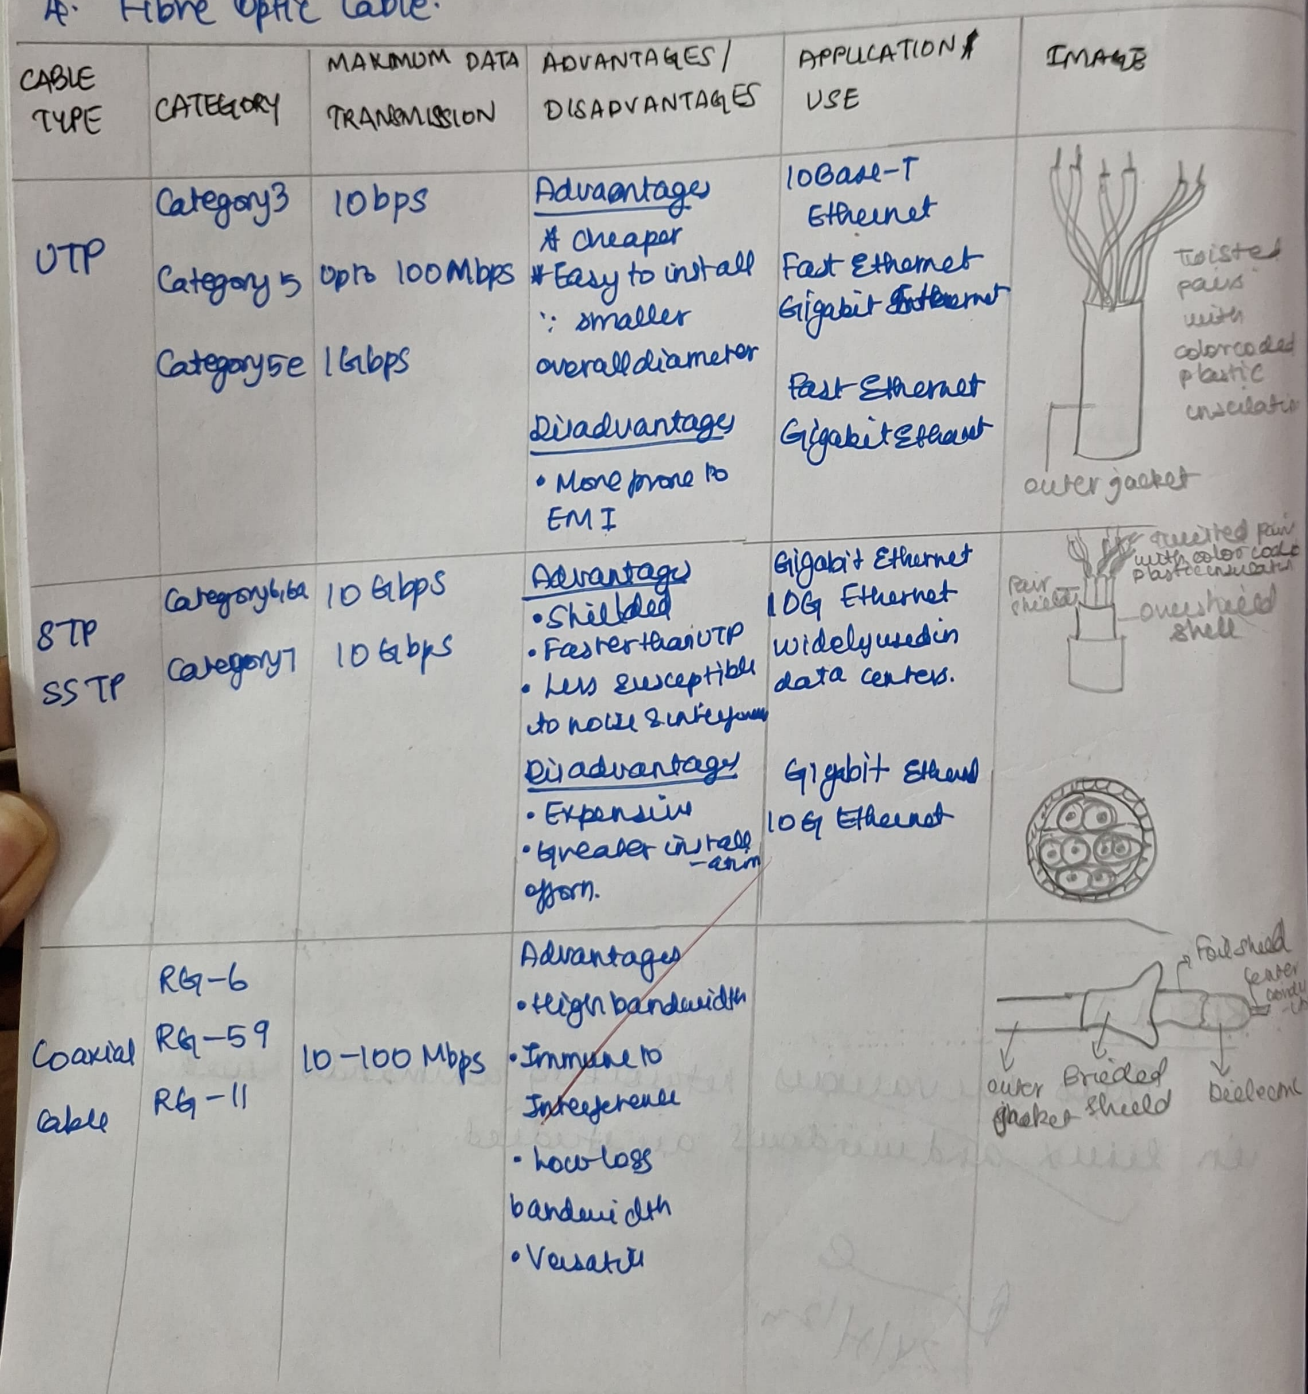 A. Fibre Optic Cable.
CABLE TYPE
CATEGORY
MAXIMUM DATA TRANSMISSION
ADVANTAGES/ DISADVANTAGES
APPLICATION/ USE
IMAGE
UTP
Category3
10bps
Category 5
Upto 100Mbps
Category5e
1Gbps
Advaantages
* Cheaper
* Easy to install
∵ smaller
overalldiameter
Disadvantages
• More prone to
EMI
10Base-T
Ethernet
Fast Ethernet
Gigabit Ethernet
Fast Ethernet
Gigabit Ethernet
Twisted
pairs
with
colorcoded
plastic
outer jacket
STP
SSTP
Category6,6a
10 Gbps
Category7
10 Gbps
Advantages
• Shielded
• Faster than UTP
• Less susceptible
to noise &
Disadvantages
• Expensive
• Greater install
-ation
effort.
Gigabit Ethernet
10G Ethernet
widely used in
data centers.
Gigabit
10G Ethernet
pair
with color code
Pair
shield
shell
Coaxial
Cable
RG-6
RG-59
RG-11
10-100 Mbps
Advantages
• High bandwidth
• Immune to
Interference
• Low loss
bandwidth
• Versatile
Foil shield
outer
jacket
Brieded
shield